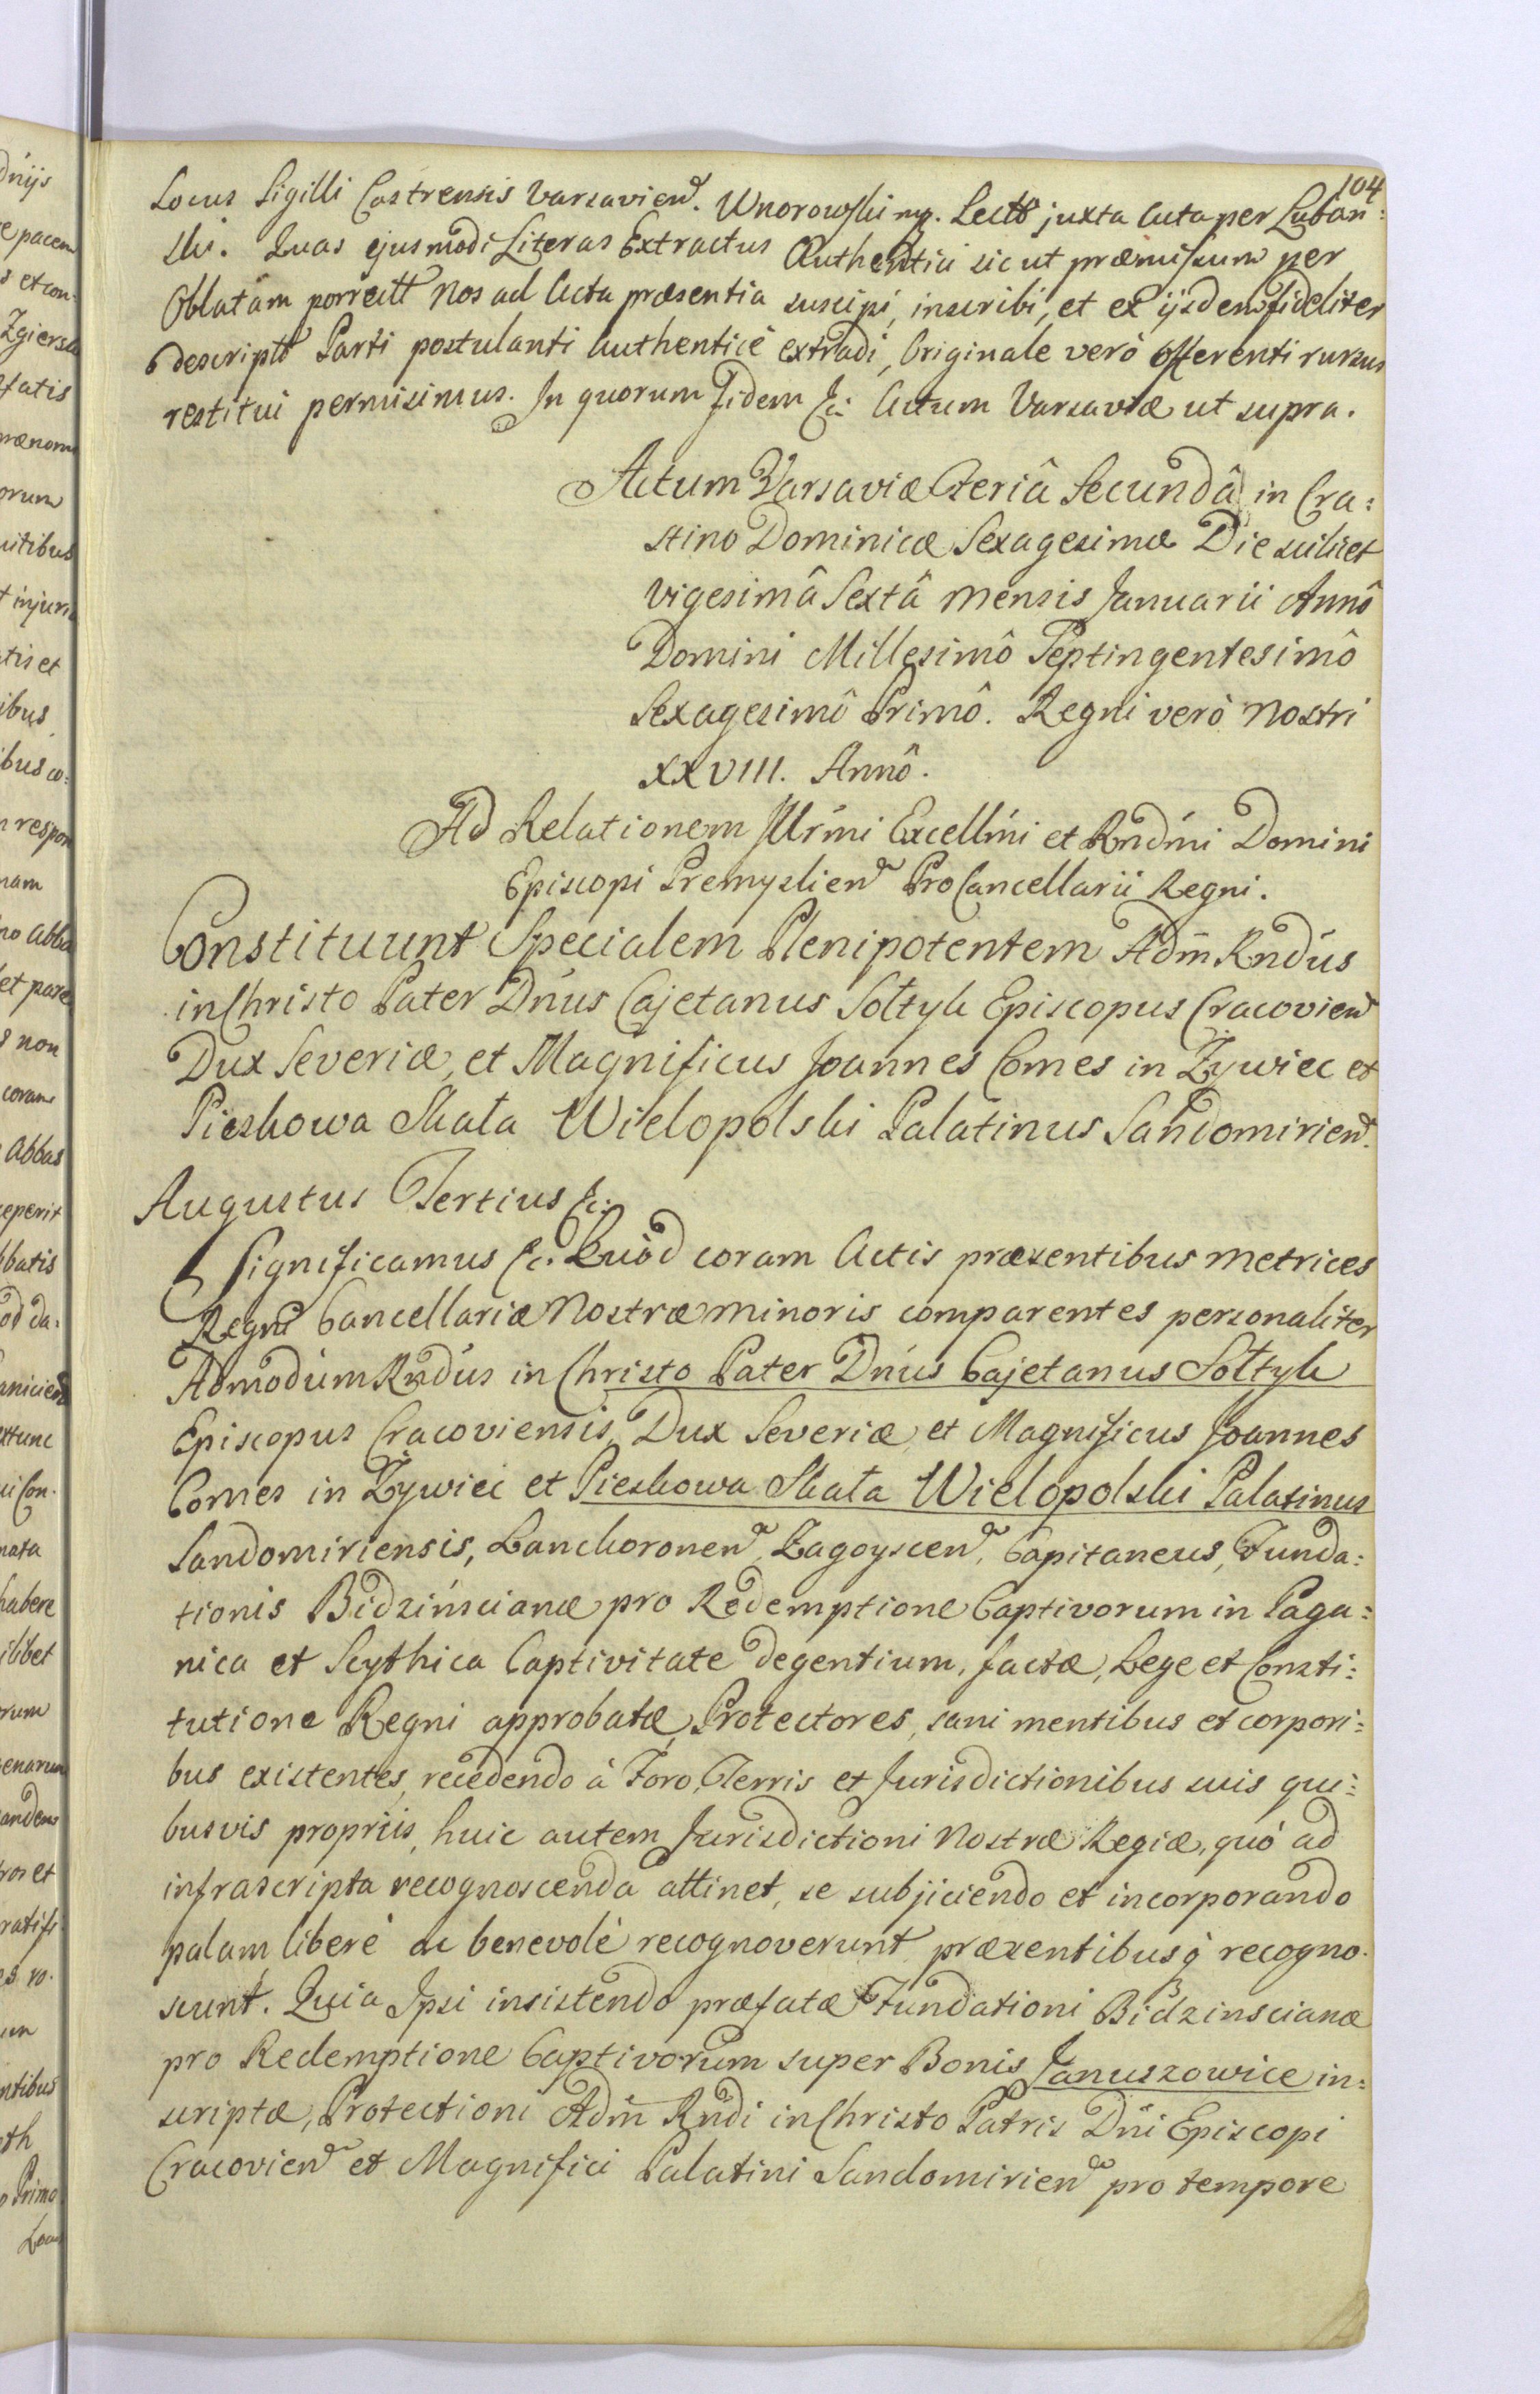 104
Locus Sigilli Castrensis Varsavien. Wnorowski mp. Lecto juxta Acta per Luban:
ski. Quas ejusmodi Literas Extractus Authentici sicut præmissum per
Oblatam porrectt Nos ad Acta præsentia suscipi, inscribi, et ex ijsdem fideliter
descriptt Parti postulanti Authenticè extradi, Originale verò Offerenti rursus
restitui permisimus. In quorum Fidem &c: Actum Varsaviæ ut supra.
Actum Varsaviæ Feriâ Secundâ in Cra:
stino Dominicæ Sexagesimæ Die scilicet
Vigesimâ Sextâ Mensis Januarii Annô
Domini Millesimô Septingentesimô
Sexagesimô Primô. Regni verò Nostri
XXVIII. Annô.
Ad Relationem Illrmi Excellmi et Rndmi Domini
Episcopi Premyslien ProCancellarii Regni.
Constituunt Specialem Plenipotentem Adm Rndus
in Christo Pater Dnus Cajetanus Sołtyk Episcopus Cracovien
Dux Severiæ, et Magnificus Joannes Comes in Zywiec et
Pieskowa Skała Wielopolski Palatinus Sandomirien.
Augustus Tertius &c:
Significamus &c. Quòd coram Actis præsentibus Metrices
Regni Cancellariæ Nostræ Minoris comparentes personaliter
Admodum Rndus in Christo Pater Dnus Cajetanus Sołtyk
Episcopus Cracoviensis, Dux Severiæ, et Magnificus Joannes
Comes in Zywiec et Pieskowa Skała Wielopolski Palatinus
Sandomiriensis, Lanckoronen, Zagoyscen, Capitaneus, Funda:
tionis Bidzińscianæ pro Redemptione Captivorum in Paga:
nica et Scythica Captivitate degentium, factæ, Lege et Consti:
tutione Regni approbatæ, Protectores, sani mentibus et corpori:
bus existentes, recedendo à Foro, Terris et Jurisdictionibus suis qui:
busvis propriis, huic autem Jurisdictioni Nostræ Regiæ, quò ad
infrascripta recognoscenda attinet, se subjiciendo et incorporando
palam liberè ac benevolè recognoverunt præsentibusq recogno.
scunt. Quia Ipsi insistendo præfatæ Fundationi Bidzinscianæ
pro Redemptione Captivorum super Bonis Januszowice in:
scriptæ, Protectioni Adm Rndi in Christo Patris Dni Episcopi
Cracovien et Magnifici Palatini Sandomirien pro tempore